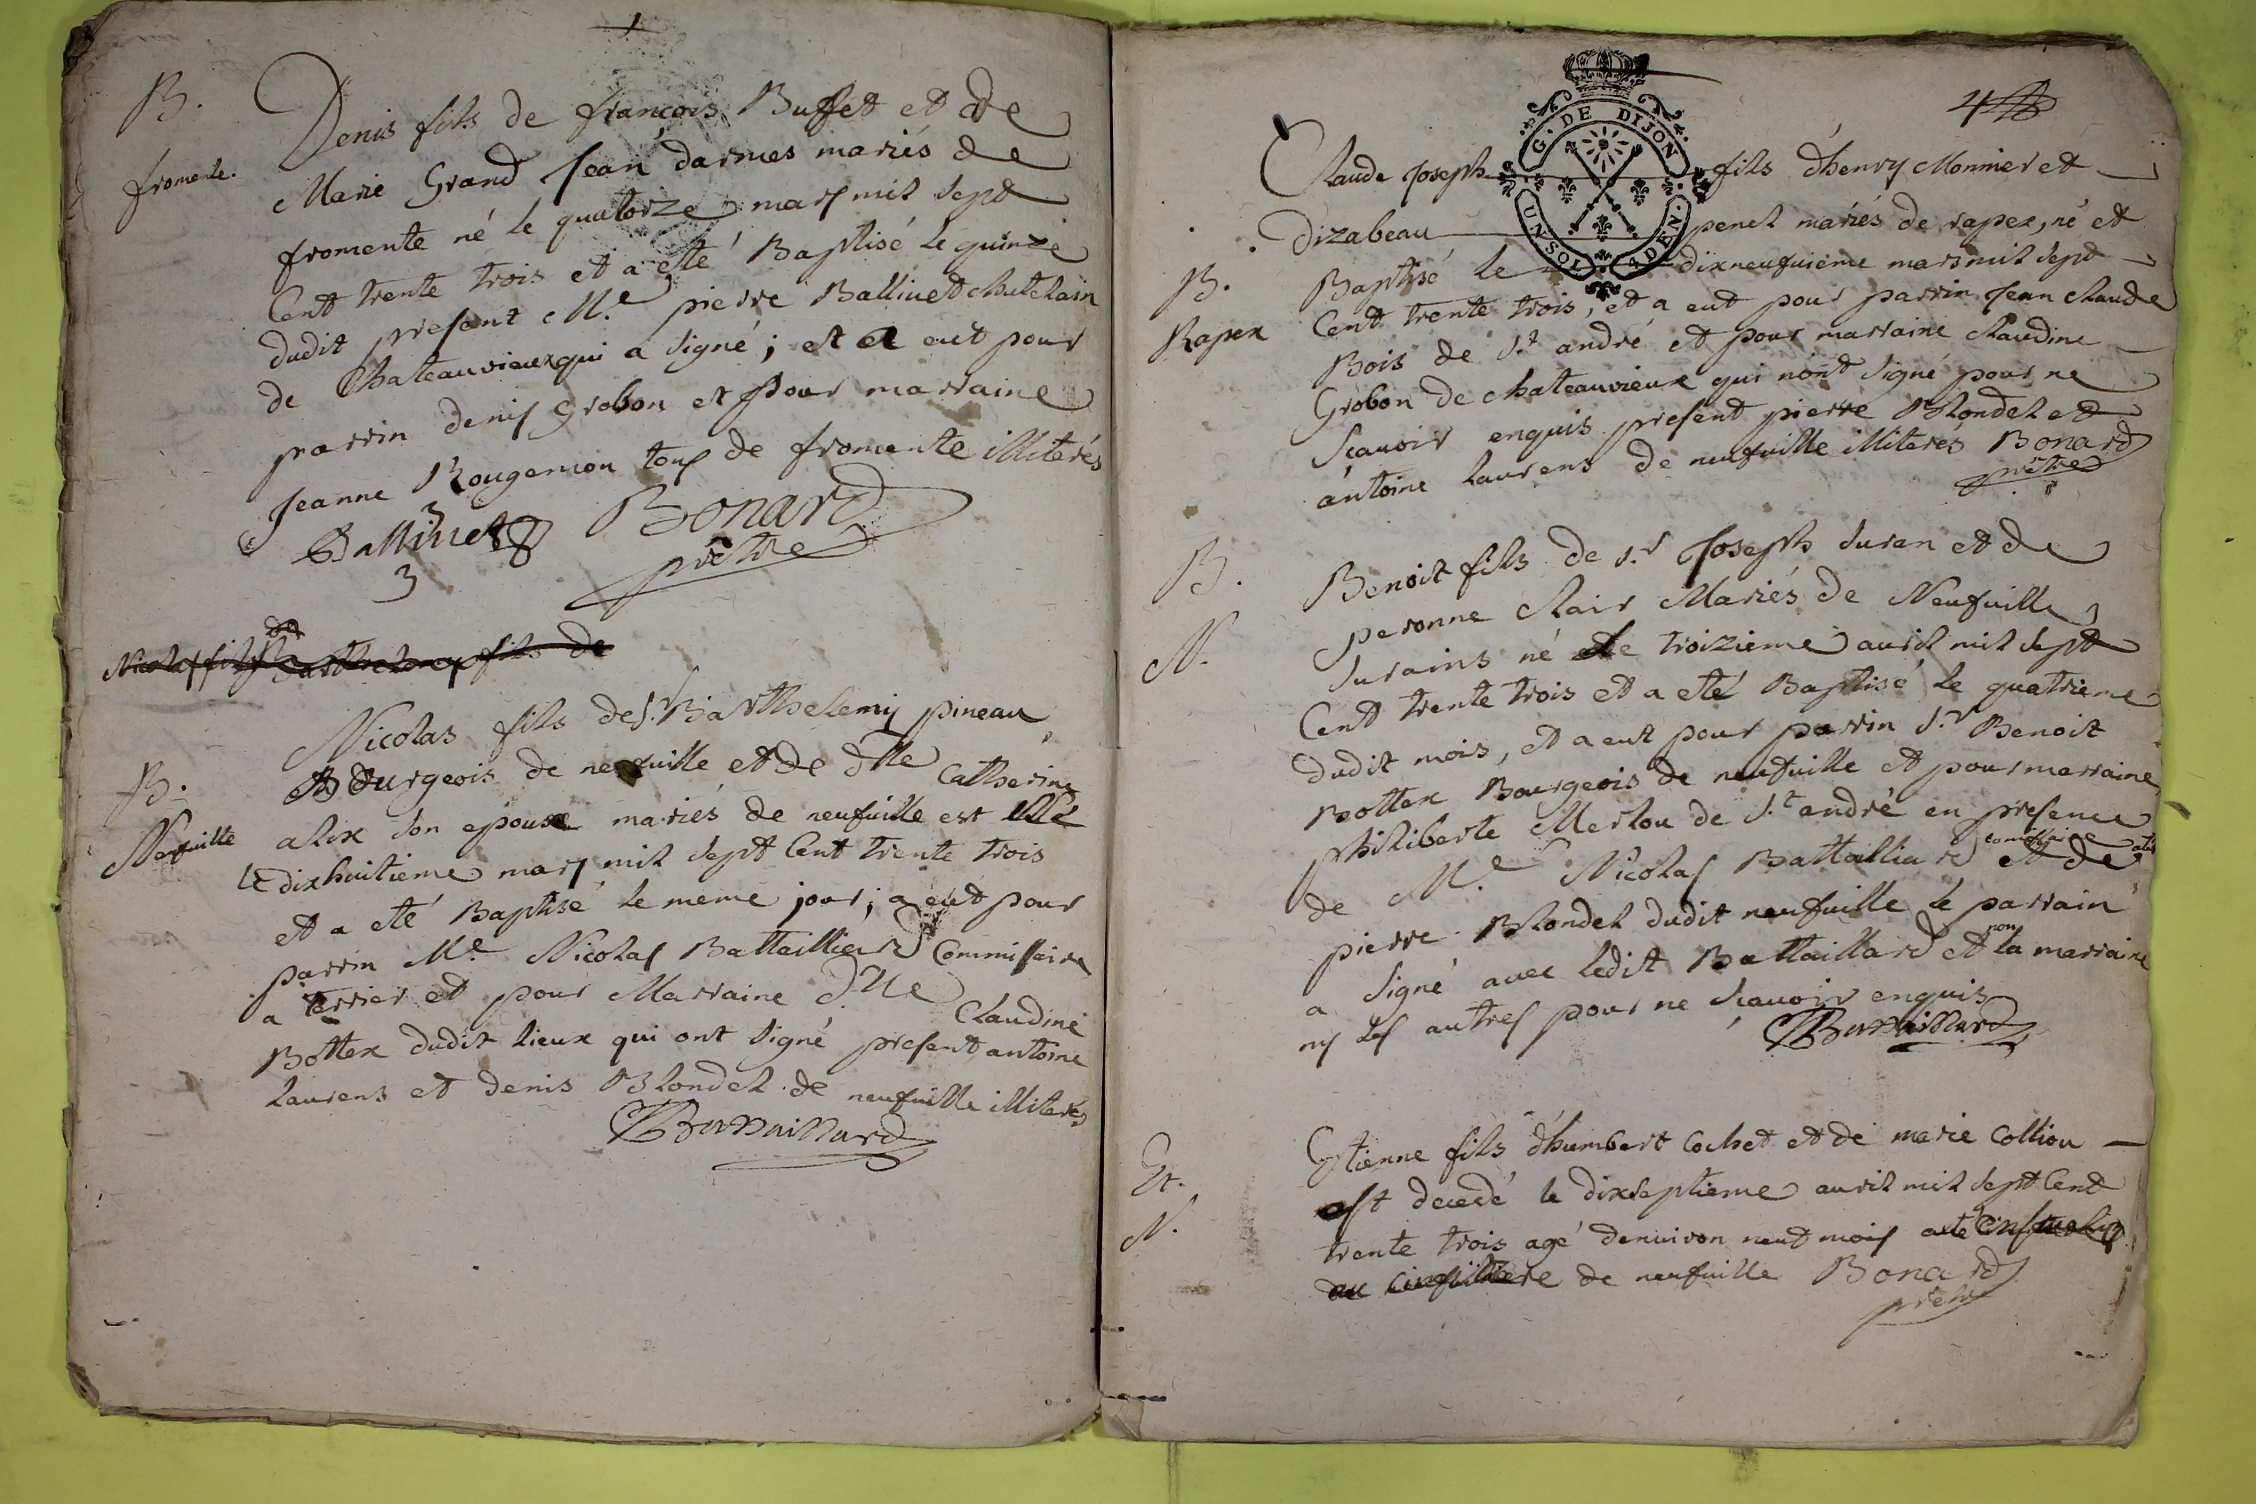 B.
fromente.
Denis fils de françois Buffet et de
Marie Grand Jean darmes mariés de
fromente né le quatorze mars mil sept
Cent trente trois et a eté Baptisé le quinze
dudit present M.e pierre Ballivet chatelain
de Chateauvieux qui a signé; et a eut pour
parrin denis Grobon et pour marraine
Jeanne Rougemon tous de fromente illiterés
Ballivet Bonard
prêtre
Nicolas fils Barthelemy fils de
B.
Neufuille
Nicolas fils de s.r Barthelemy pineau
Bourgeois de neufuille et de dlle Catherine
alix son epouse mariés de neufuille est né
le dixhuitieme mars mil sept Cent trente trois
et a eté Baptisé le meme jour; a eut pour
parrin M.e Nicolas Battaillard Commissaire
a terrier et pour Marraine dlle Claudine
Bottex dudit lieux qui ont signé present antoine
laurens et denis Blondel de neufuille illiterés
Battaillard
G. DE DIJON
UN SOL 4 DEN.
B.
Rapex
Claude Joseph fils d'henry Monnier et
dizabeau penel mariés de rapex, né et
Baptisé le dixneufuieme mars mil sept
Cent trente trois, et a eut pour parrin Jean claude
Bois de s.t andré et pour marraine claudine
Grobon de chateauvieux qui n'ont signé pour ne
scauoir enquis present pierre Blondel et
antoine laurens de neufuille illiterés Bonard
prêtre
B.
N.
Benoit fils de s.r Joseph suran et de
peronne clair Mariés de Neufuille
surains né le troizieme auril mil sept
Cent trente trois et a eté Baptisé le quatrieme
dudit mois, et a eut pour parrin s.r Benoit
Bottex Bourgeois de neufuille et pour marraine
philiberte Merlou de s.t andré en presence
de M.e Nicolas Battaillard commissaire et de
pierre Blondel dudit neufuille le parrain
a signé auec ledit Battaillard et non la marraine
ny les autres pour ne scauoir enquis
Battaillard
Et.
N.
Etienne fils d'humbert Cochet et de marie Colliou
est decedé le dixseptieme auril mil sept Cent
trente trois agé denuiron neuf mois
de neufuille Bonard
prêtre